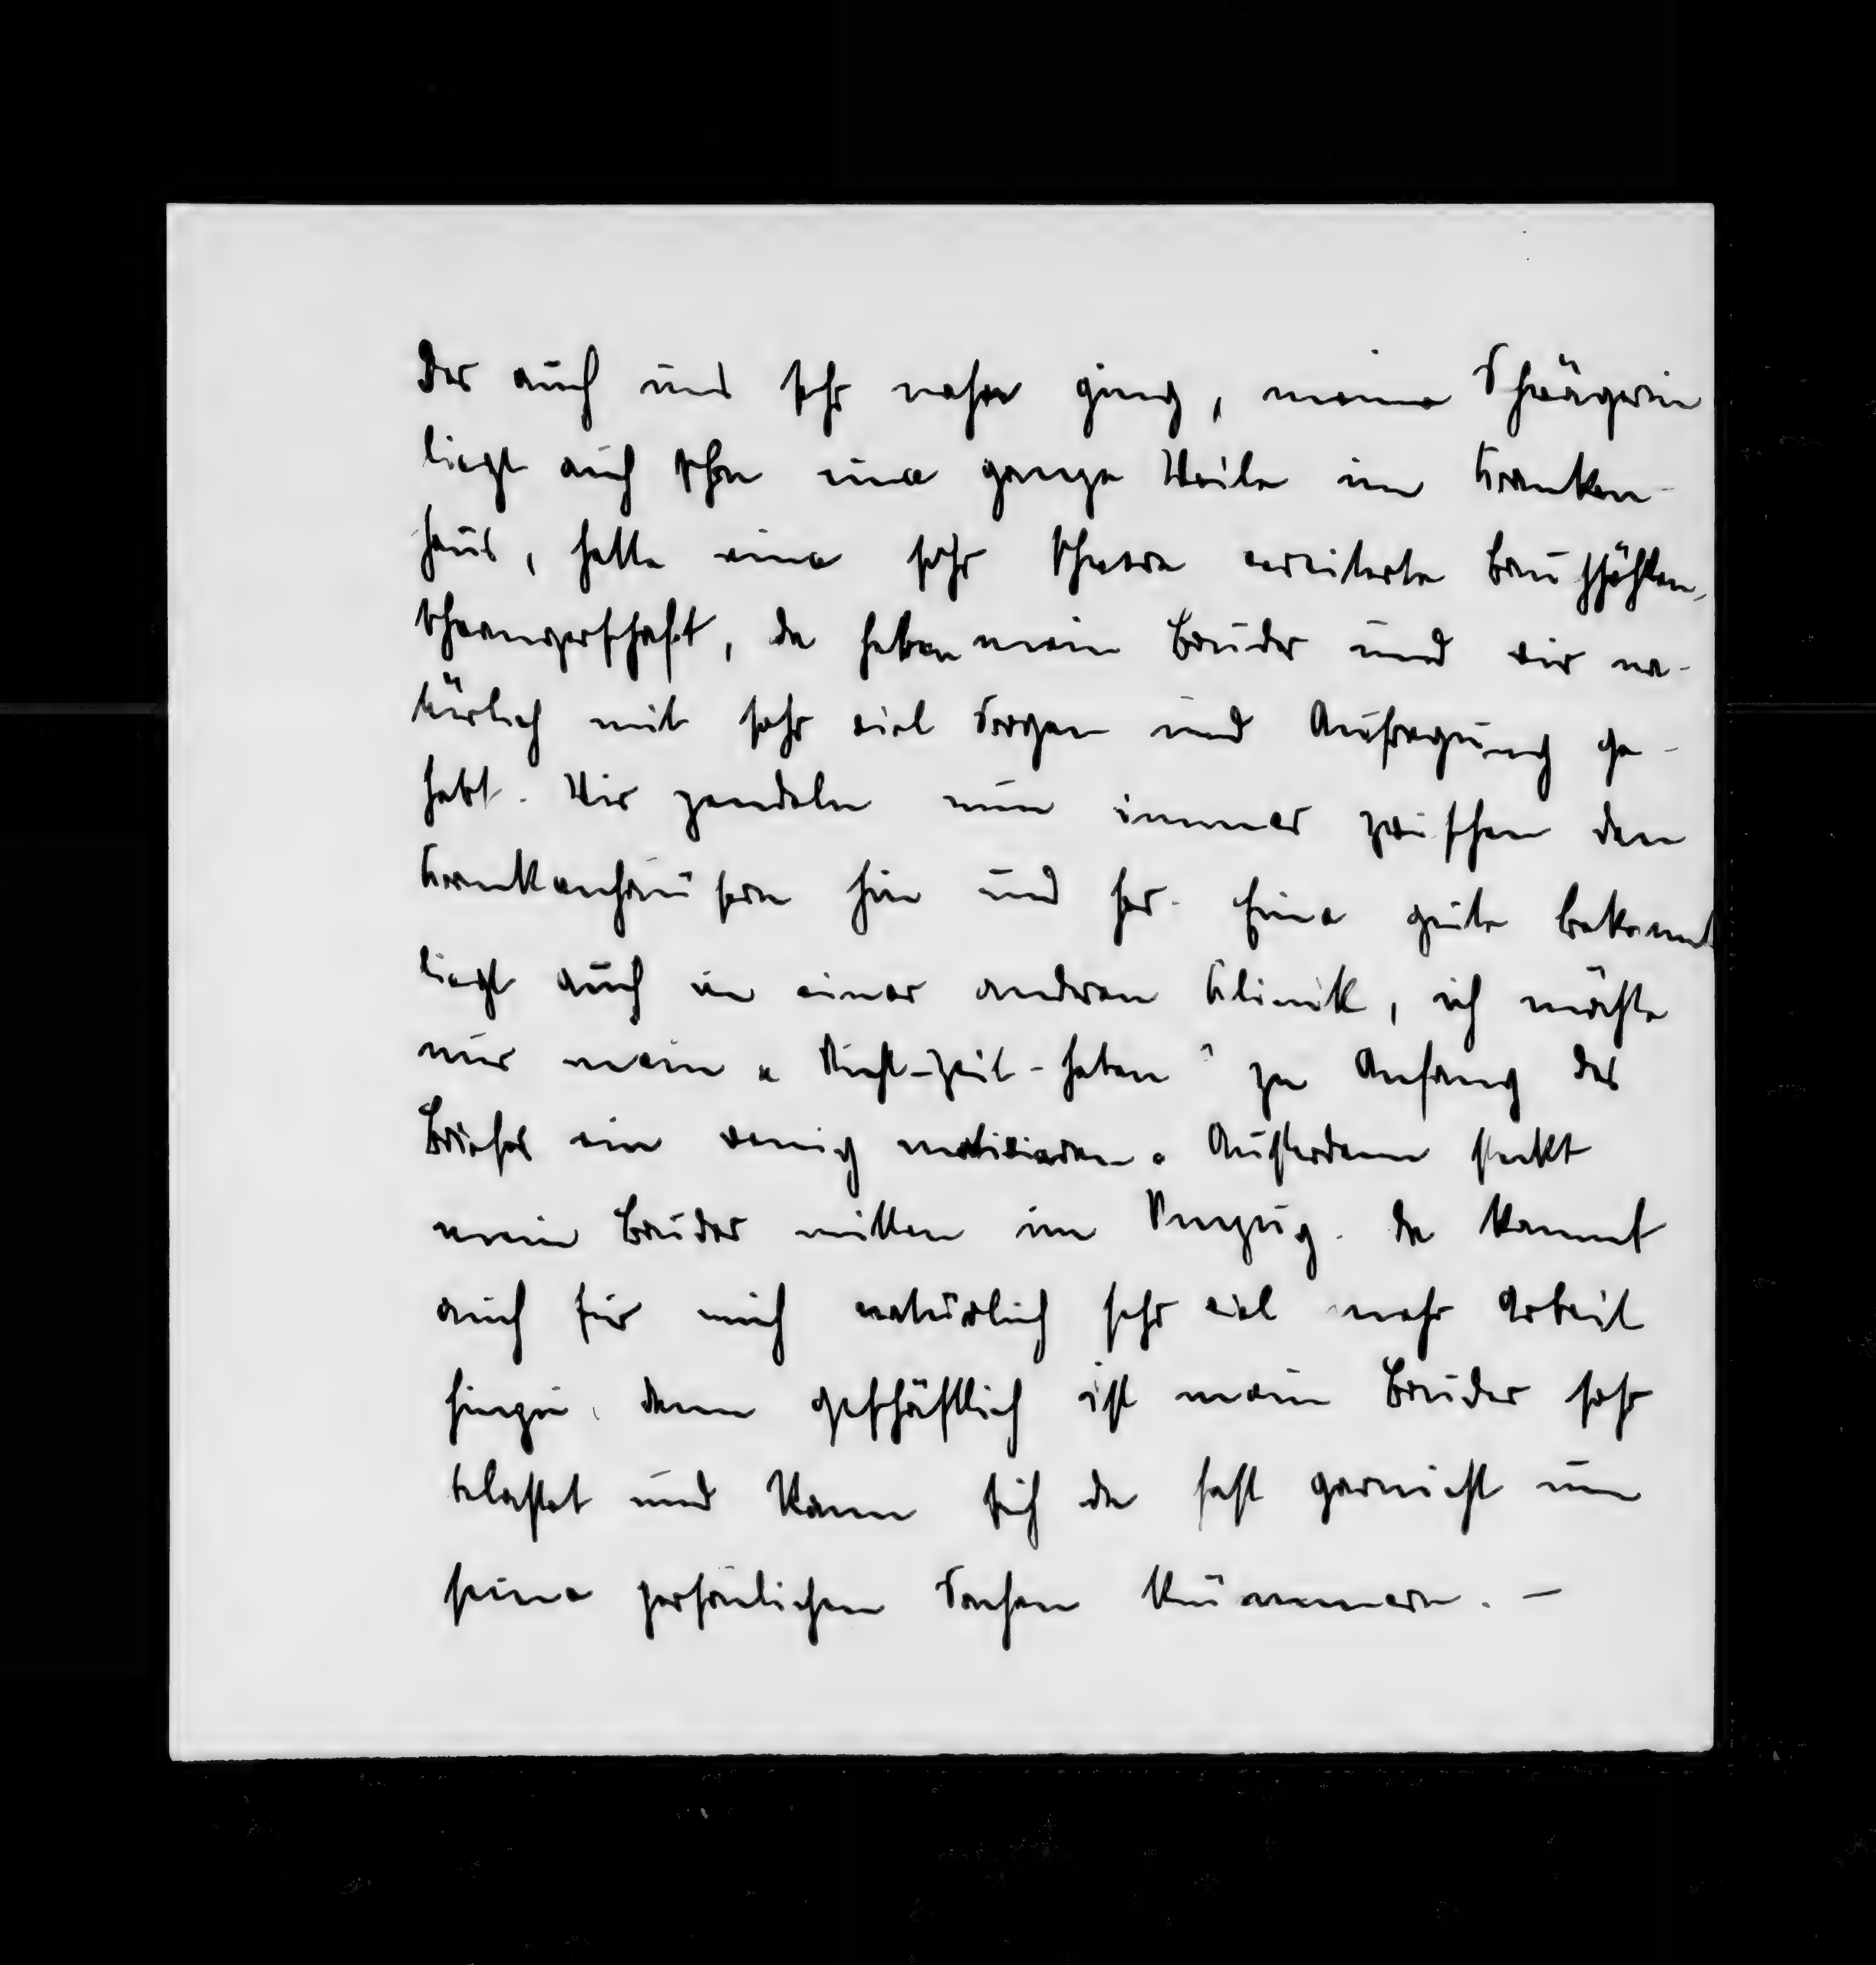 der auch uns sehr nahe ging, meine Schwägerin
liegt auch schon eine ganze Weile im Kranken-
haus, hatte eine sehr schwere vereiterte Bauchhöhlen-
schwangerschaft, da haben mein Bruder und wir na-
türlich mit sehr viel Sorgen und Aufregung ge-
habt. Wir pendeln nun immer zwischen den
Krankenhäusern hin und her. Eine gute Bekannte
liegt auch in einer anderen Klinik, ich möchte
nur mein „Nicht-Zeit-haben" zu Anfang des
Briefes ein wenig motivieren. Außerdem steckt
mein Bruder mitten im Umzug. Da kommt
auch für mich natürlich sehr viel mehr Arbeit
hinzu, denn geschäftlich ist mein Bruder sehr
belastet und kann sich da fast garnicht um
seine persönlichen Sachen kümmern. —